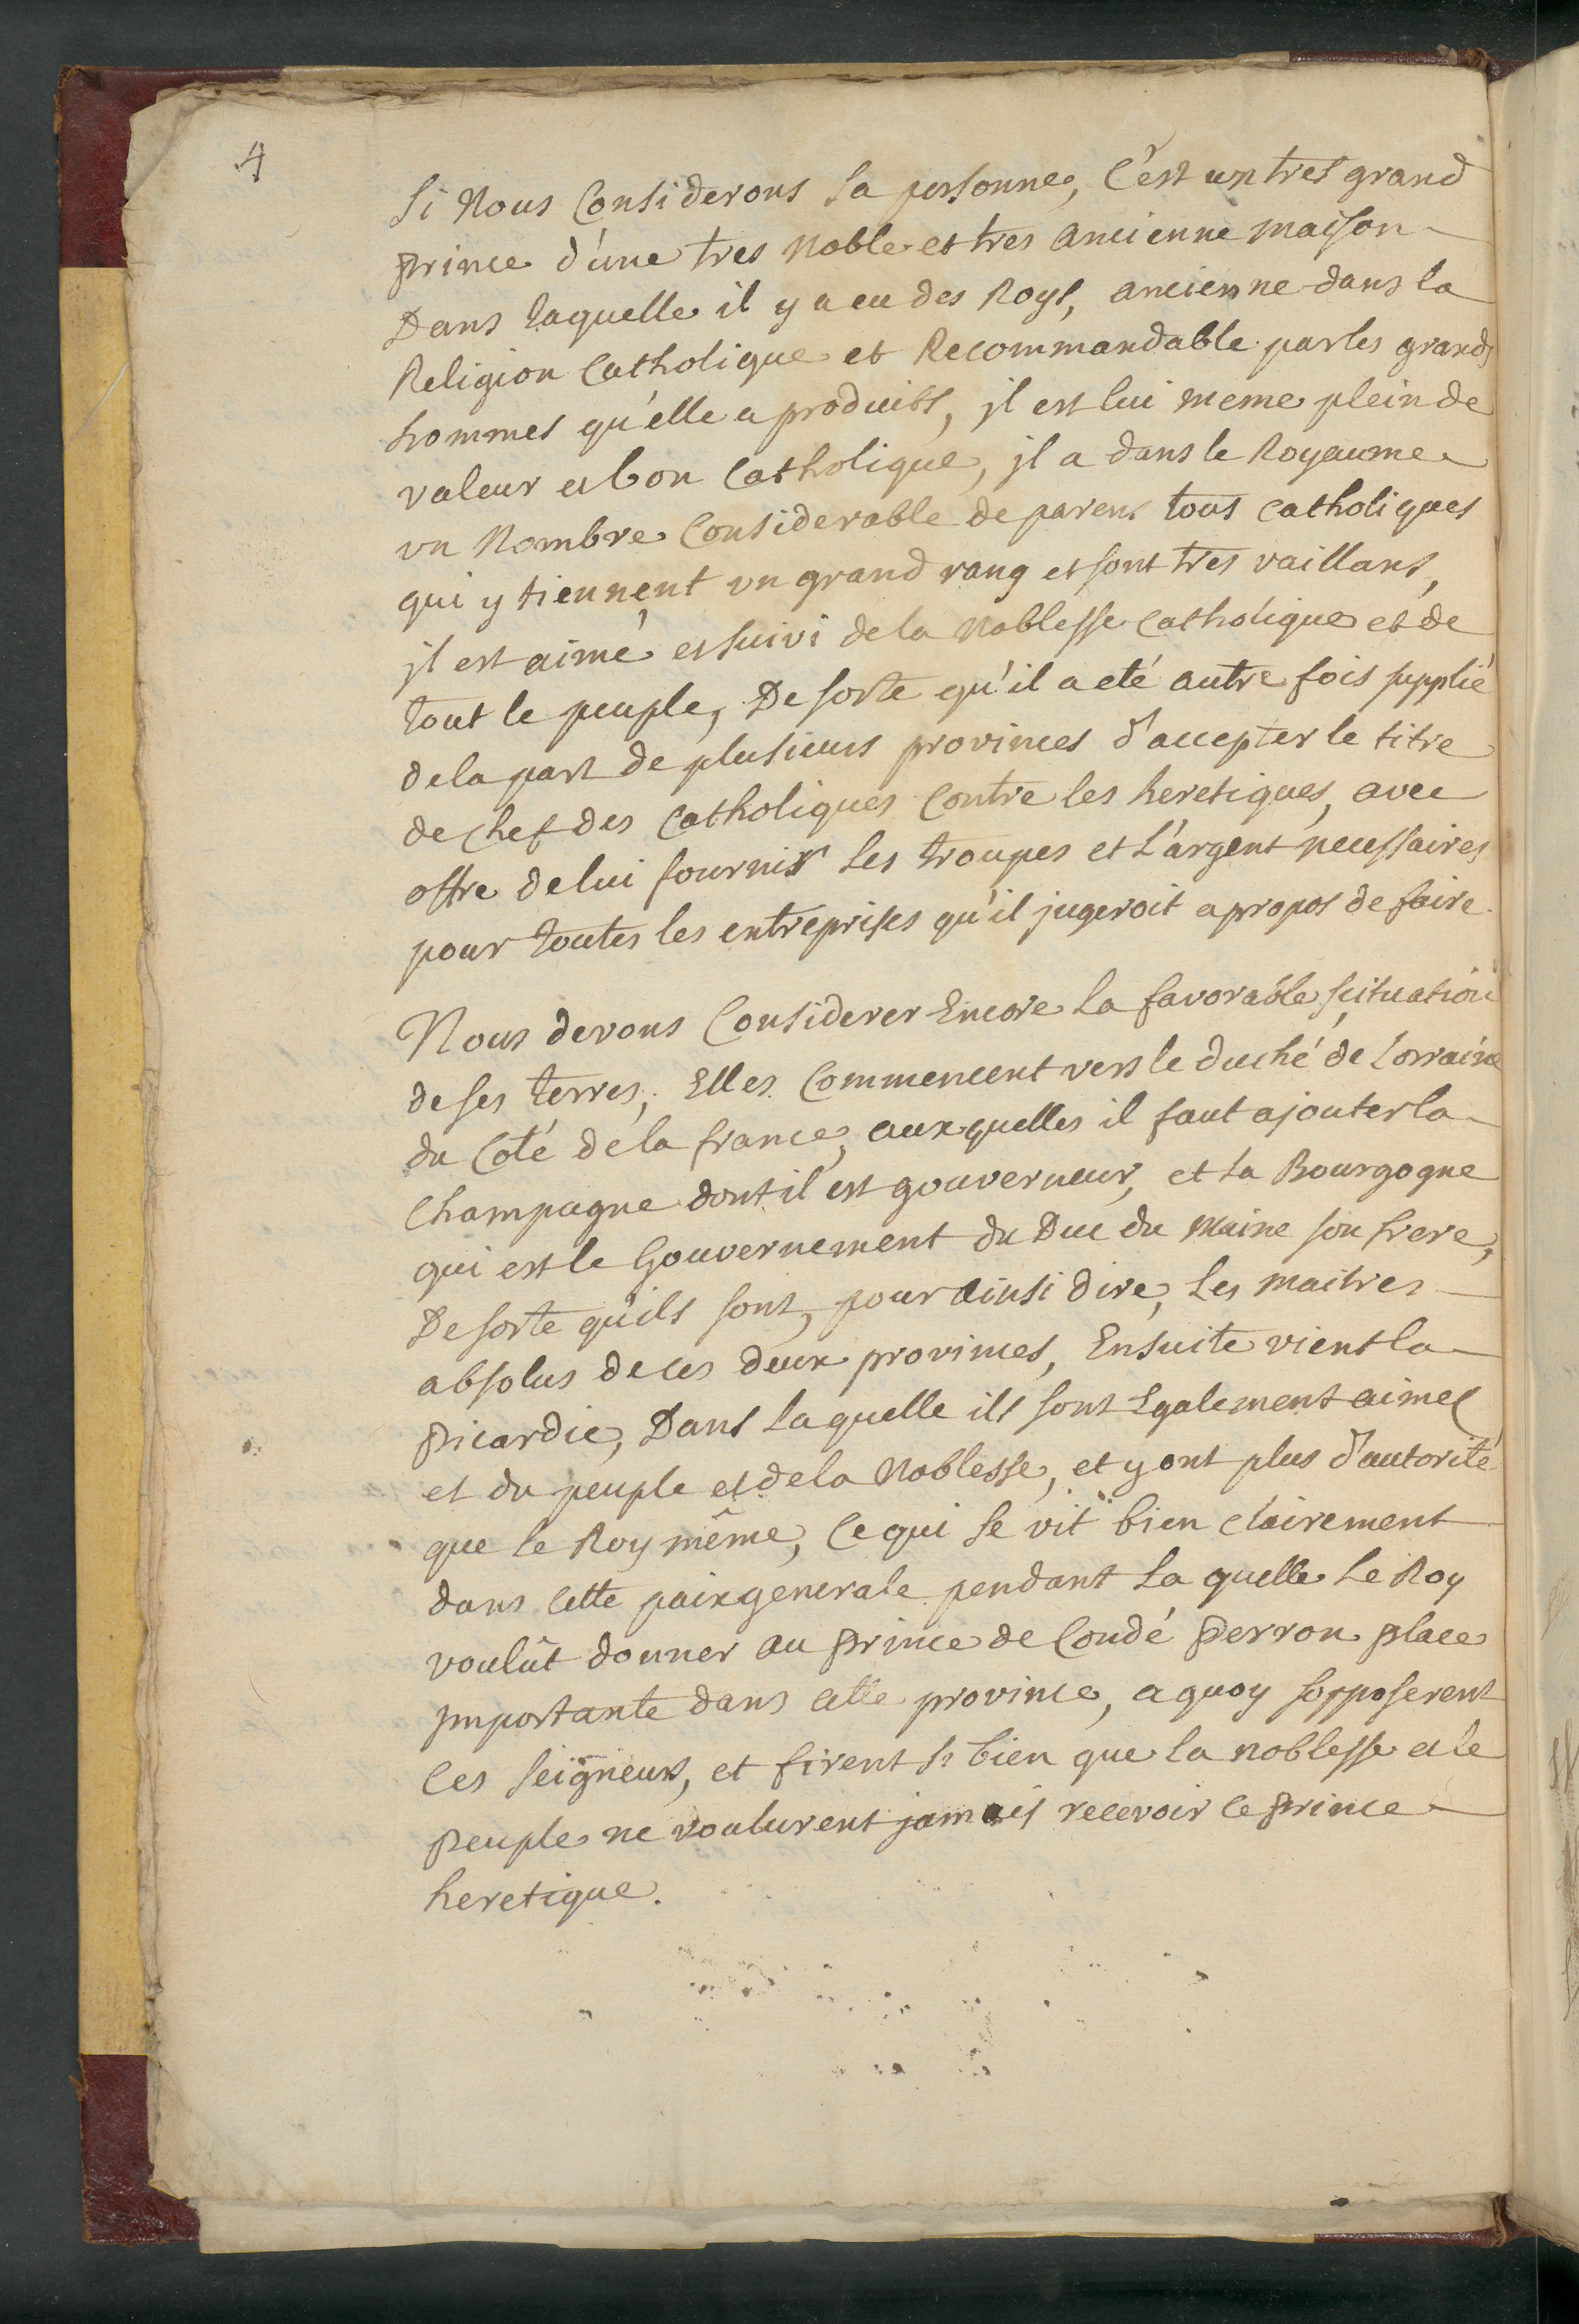 4
Si Nous Considerons sa personne, C'est un tres grand
prince d'une tres Noble et tres ancienne maison
Dans laquelle il y a eu des Roys, ancienne dans la
Religion Catholique et Recommandable par les grands
hommes qu'elle a produits, jl est lui meme plein de
valeur et bon Catholique, jl a dans le Royaume
un Nombre Considerable de parens tous catholiques
qui y tiennent un grand rang et sont tres vaillans,
jl est aimé et suivi de la Noblesse Catholique et de
tout le peuple, De sorte qu'il a eté autre fois supplié
de la part de plusieurs provinces d'accepter le titre
de Chef des Catholiques Contre les heretiques, avec
offre de lui fournir les troupes et L'argent necessaires
pour toutes les entreprises qu'il jugeroit a propos de faire.
Nous devons Considerer Encore la favorable scituation
de ses terres; Elles Commencent vers le duché de Lorraine
du Coté de la france, aux quelles il faut ajouter la
Champagne dont il est gouverneur, et la Bourgogne
qui est le Gouvernement du Duc du Maine son frere,
De sorte qu'ils sont, pour ainsi dire, Les maitres
absolus de ces deux provinces, Ensuite vient la
picardie, Dans laquelle ils sont Egalement aimes
et du peuple et de la Noblesse, et y ont plus d'autorité
que le Roy même, Ce qui se vit bien clairement
dans cette paix generale pendant La quelle Le Roy
voulût donner au prince de Condé perron place
jmportante dans cette province, a quoy sopposerent
Ces Seigneurs, et firent si bien que la noblesse et le
peuple ne voulurent jamais recevoir ce prince
heretique.